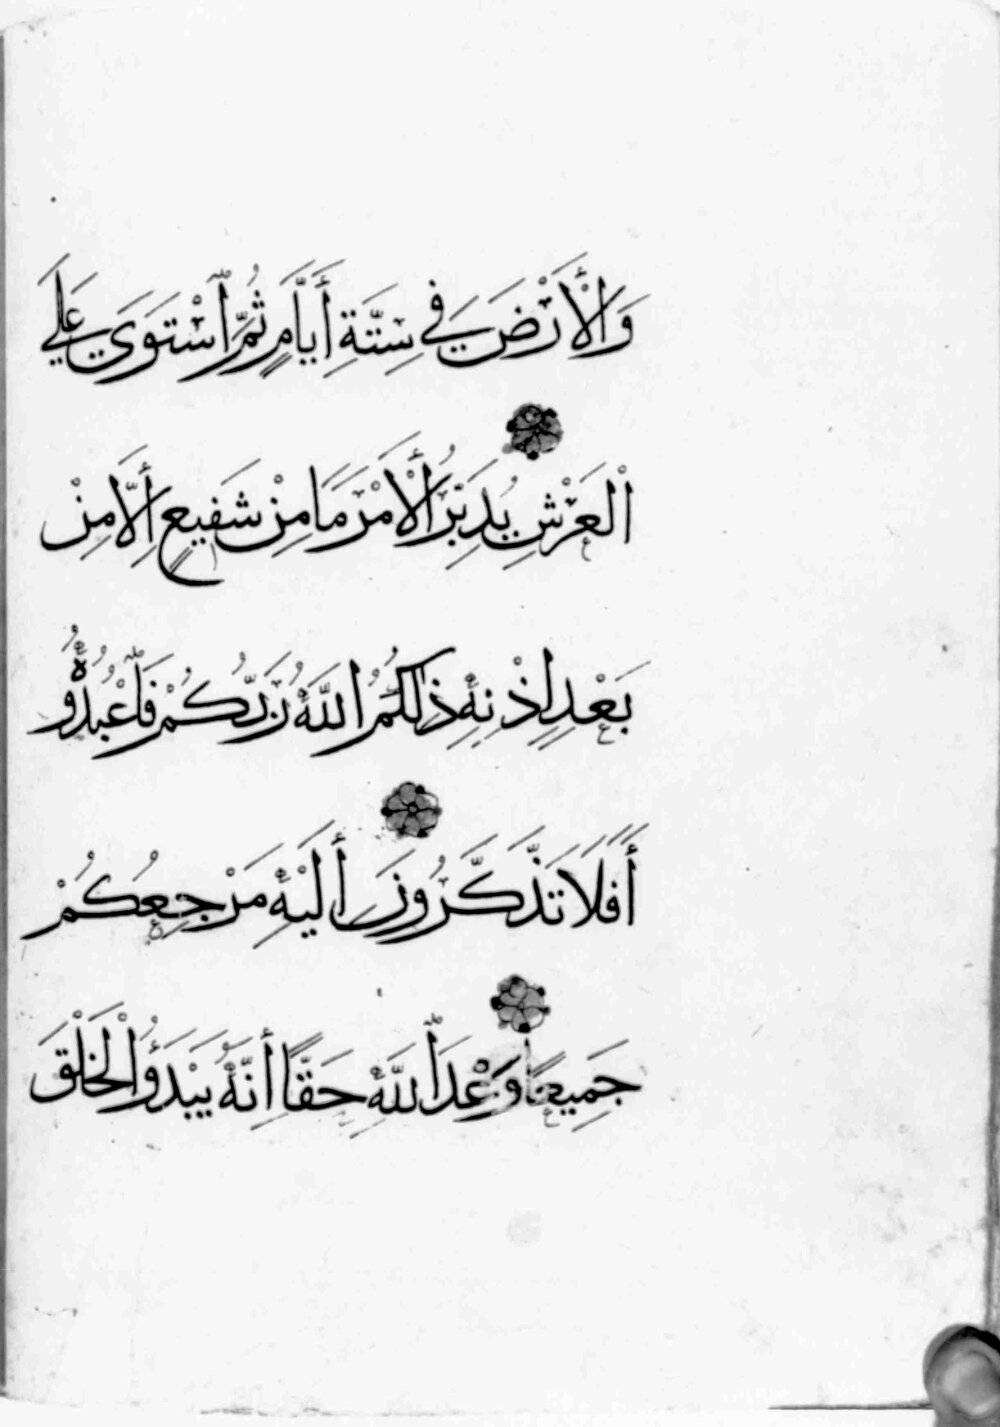 وَالْأَرْضَ فِي سِتَّةِ أَيَّامٍ ثُمَّ اسْتَوَى عَلَى
الْعَرْشِ يُدَبِّرُ الْأَمْرَ مَا مِنْ شَفِيعٍ إِلَّا مِنْ
بَعْدِ إِذْنِهِ ذَلِكُمُ اللَّهُ رَبُّكُمْ فَاعْبُدُوهُ
أَفَلَا تَذَكَّرُونَ إِلَيْهِ مَرْجِعُكُمْ
جَمِيعًا وَعْدَ اللَّهِ حَقًّا إِنَّهُ يَبْدَؤُا الْخَلْقَ